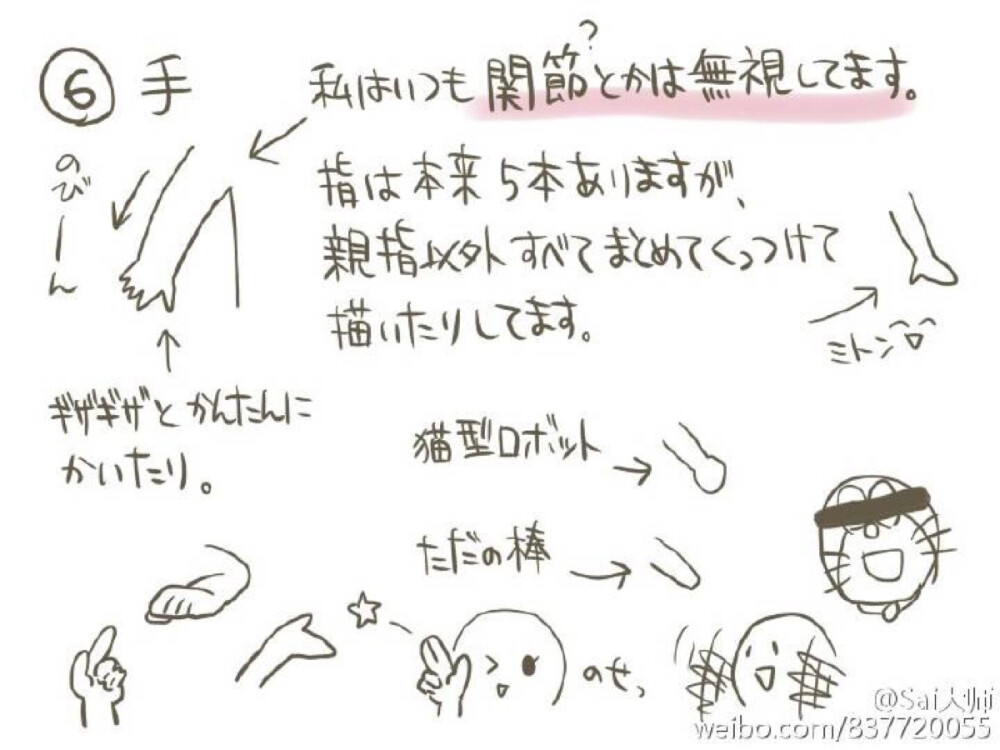 ⑥ 手
?
私はいつも関節とかは無視してます。
のびーん
指は本来5本ありますが、
親指以外すべてまとめてくっつけて
描いたりしてます。
ミトン
ギザギザとかんたんに
かいたり。
猫型ロボット
ただの棒
のせっ
@Sai大师
weibo.com/837720055